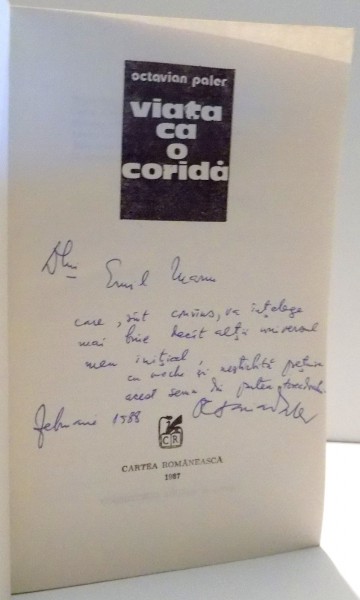 octavian paler
viața
ca
o
coridă
Dlui Emil Manu
care, sînt convins, va înțelege
mai bine decît alții universul
meu inițial,
cu veche și neștirbită prețuire
acest semn din partea
februarie 1988 Octavian Paler
CR
CARTEA ROMÂNEASCĂ
1987